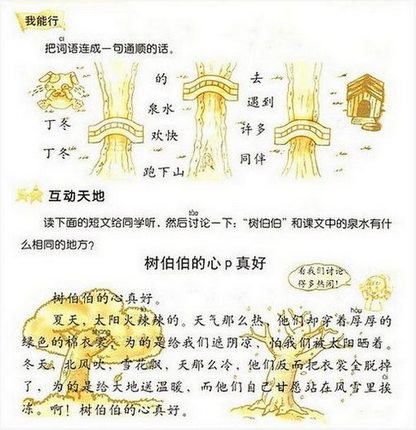 我能行
cí
把词语连成一句通顺的话。
丁冬
丁冬
的
泉水
欢快
跑下山
去
遇到
许多
同伴
互动天地
tǎo
读下面的短文给同学听，然后讨论一下：“树伯伯”和课文中的泉水有什
么相同的地方？
树伯伯的心p真好
看我们讨论
得多热闹！
树伯伯的心真好。
hòu
夏天，太阳火辣辣的。天气那么热，他们却穿着厚厚的
shang
绿色的棉衣裳，为的是给我们遮阴凉，怕我们被太阳晒着。
冬天，北风吹，雪花飘，天那么冷，他们反而把衣裳全脱掉
了，为的是给大地送温暖，而他们自己甘愿站在风雪里挨
冻。啊！树伯伯的心真好。